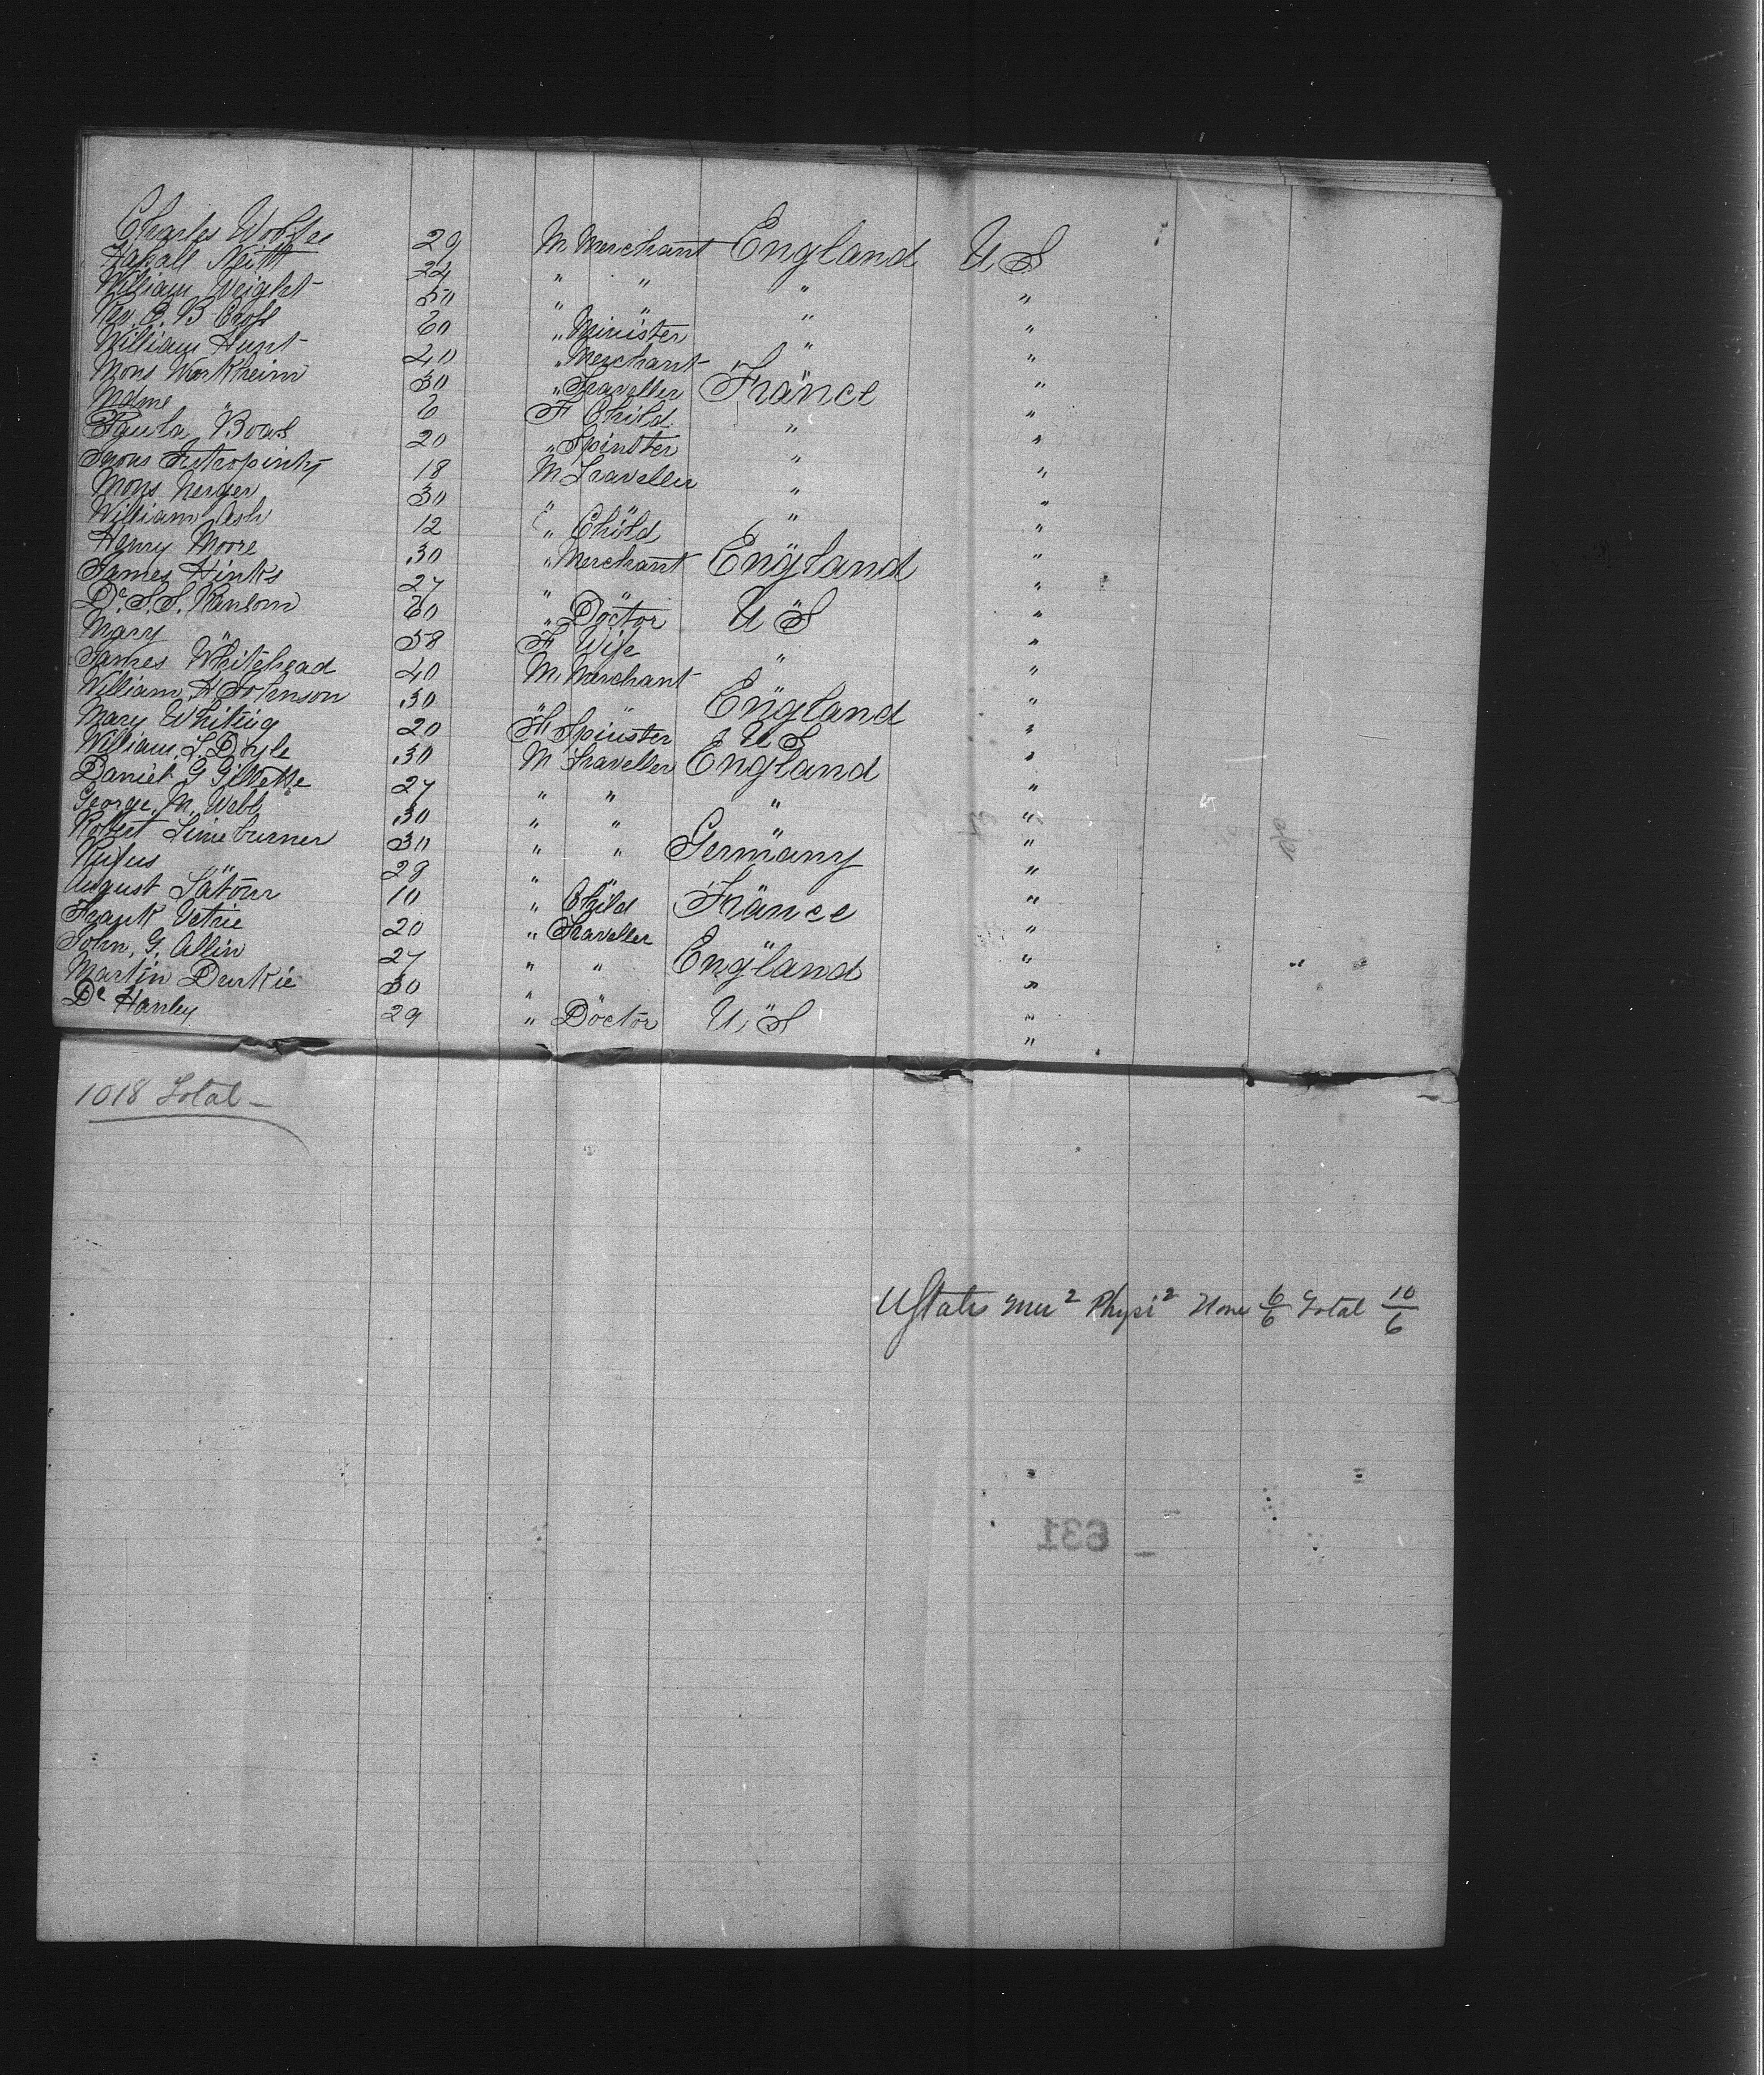 Charles 29 M Merchant England U S
22 " " " "
William Weight 50 " " " "
Rev. E. B. Cross 60 " Minister " "
William Hunt 20 " Merchant "
Mons Workheim 30 " Traveller France "
Mdme " 6 F Child " "
Paula Boas 20 " Spinster " "
18 M Traveller " "
Mons Nerger 30 " " " "
William Ash 12 " Child "
Henry Moore 30 " Merchant England "
James Hinks 27 " " "
Dr. S. S. Ransom 60 " Doctor U S "
Mary " 58 F Wife " "
James Whitehead 40 M Merchant "
William H Johnson 30 " " England "
Mary Whiting 20 F Spinster U S "
William L Doyle 30 M Traveller England "
Daniel G Gillette 27 " " " "
George. M. Webb 30 " " "
Robert Limeburner 30 " " Germany "
Rufus " 28 " " "
August Latour 10 " Child France "
Frank 20 " Traveller "
John, G. Allin 27 " " England "
Martin Durkie 30 " "
Dr Hanley 29 " Doctor U, S "
"
1018 Total
U States Mer 2 Physi 2 None 6/6 Total 10/6
631